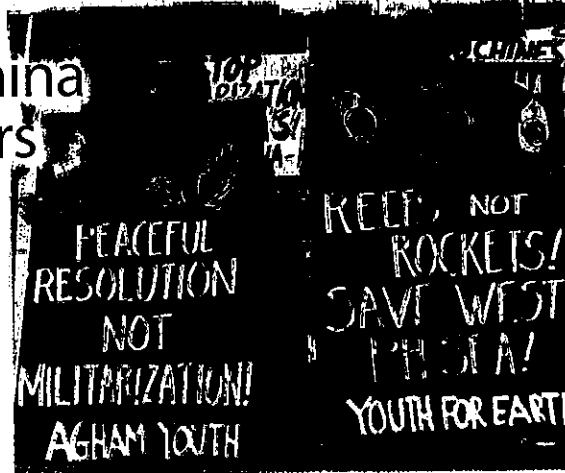 hina
rs
TOP
CHINES
PEACEFUL
RESOLUTION
NOT
MILITARIZATION!
AGHAM YOUTH
REEFS, NOT
ROCKETS!
SAVE WEST
PH SEA!
YOUTH FOR EART